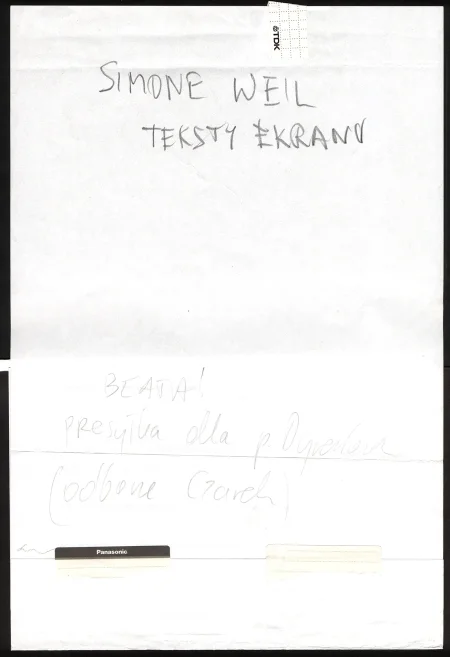 TDK
SIMONE WEIL
TEKSTY EKRANU
BEATA!
PRESYŁKA dla p.
(odbierze Czarek)
Panasonic